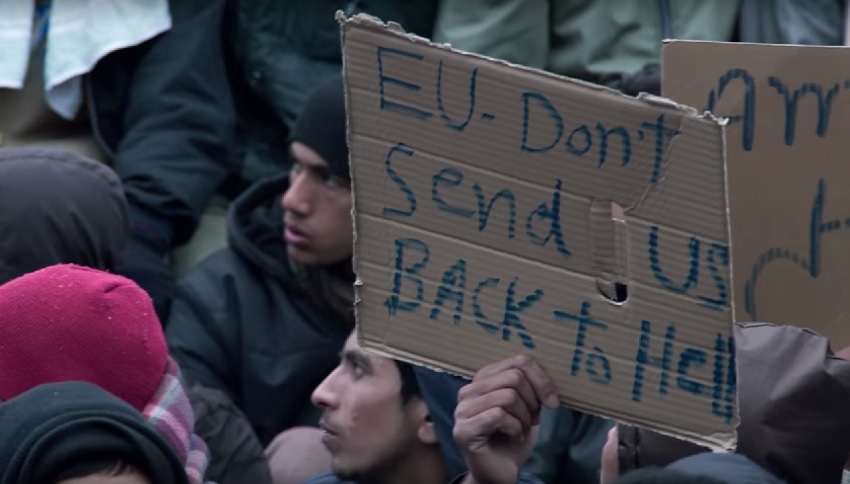 EU- Don't
Send us
BACK to Hell